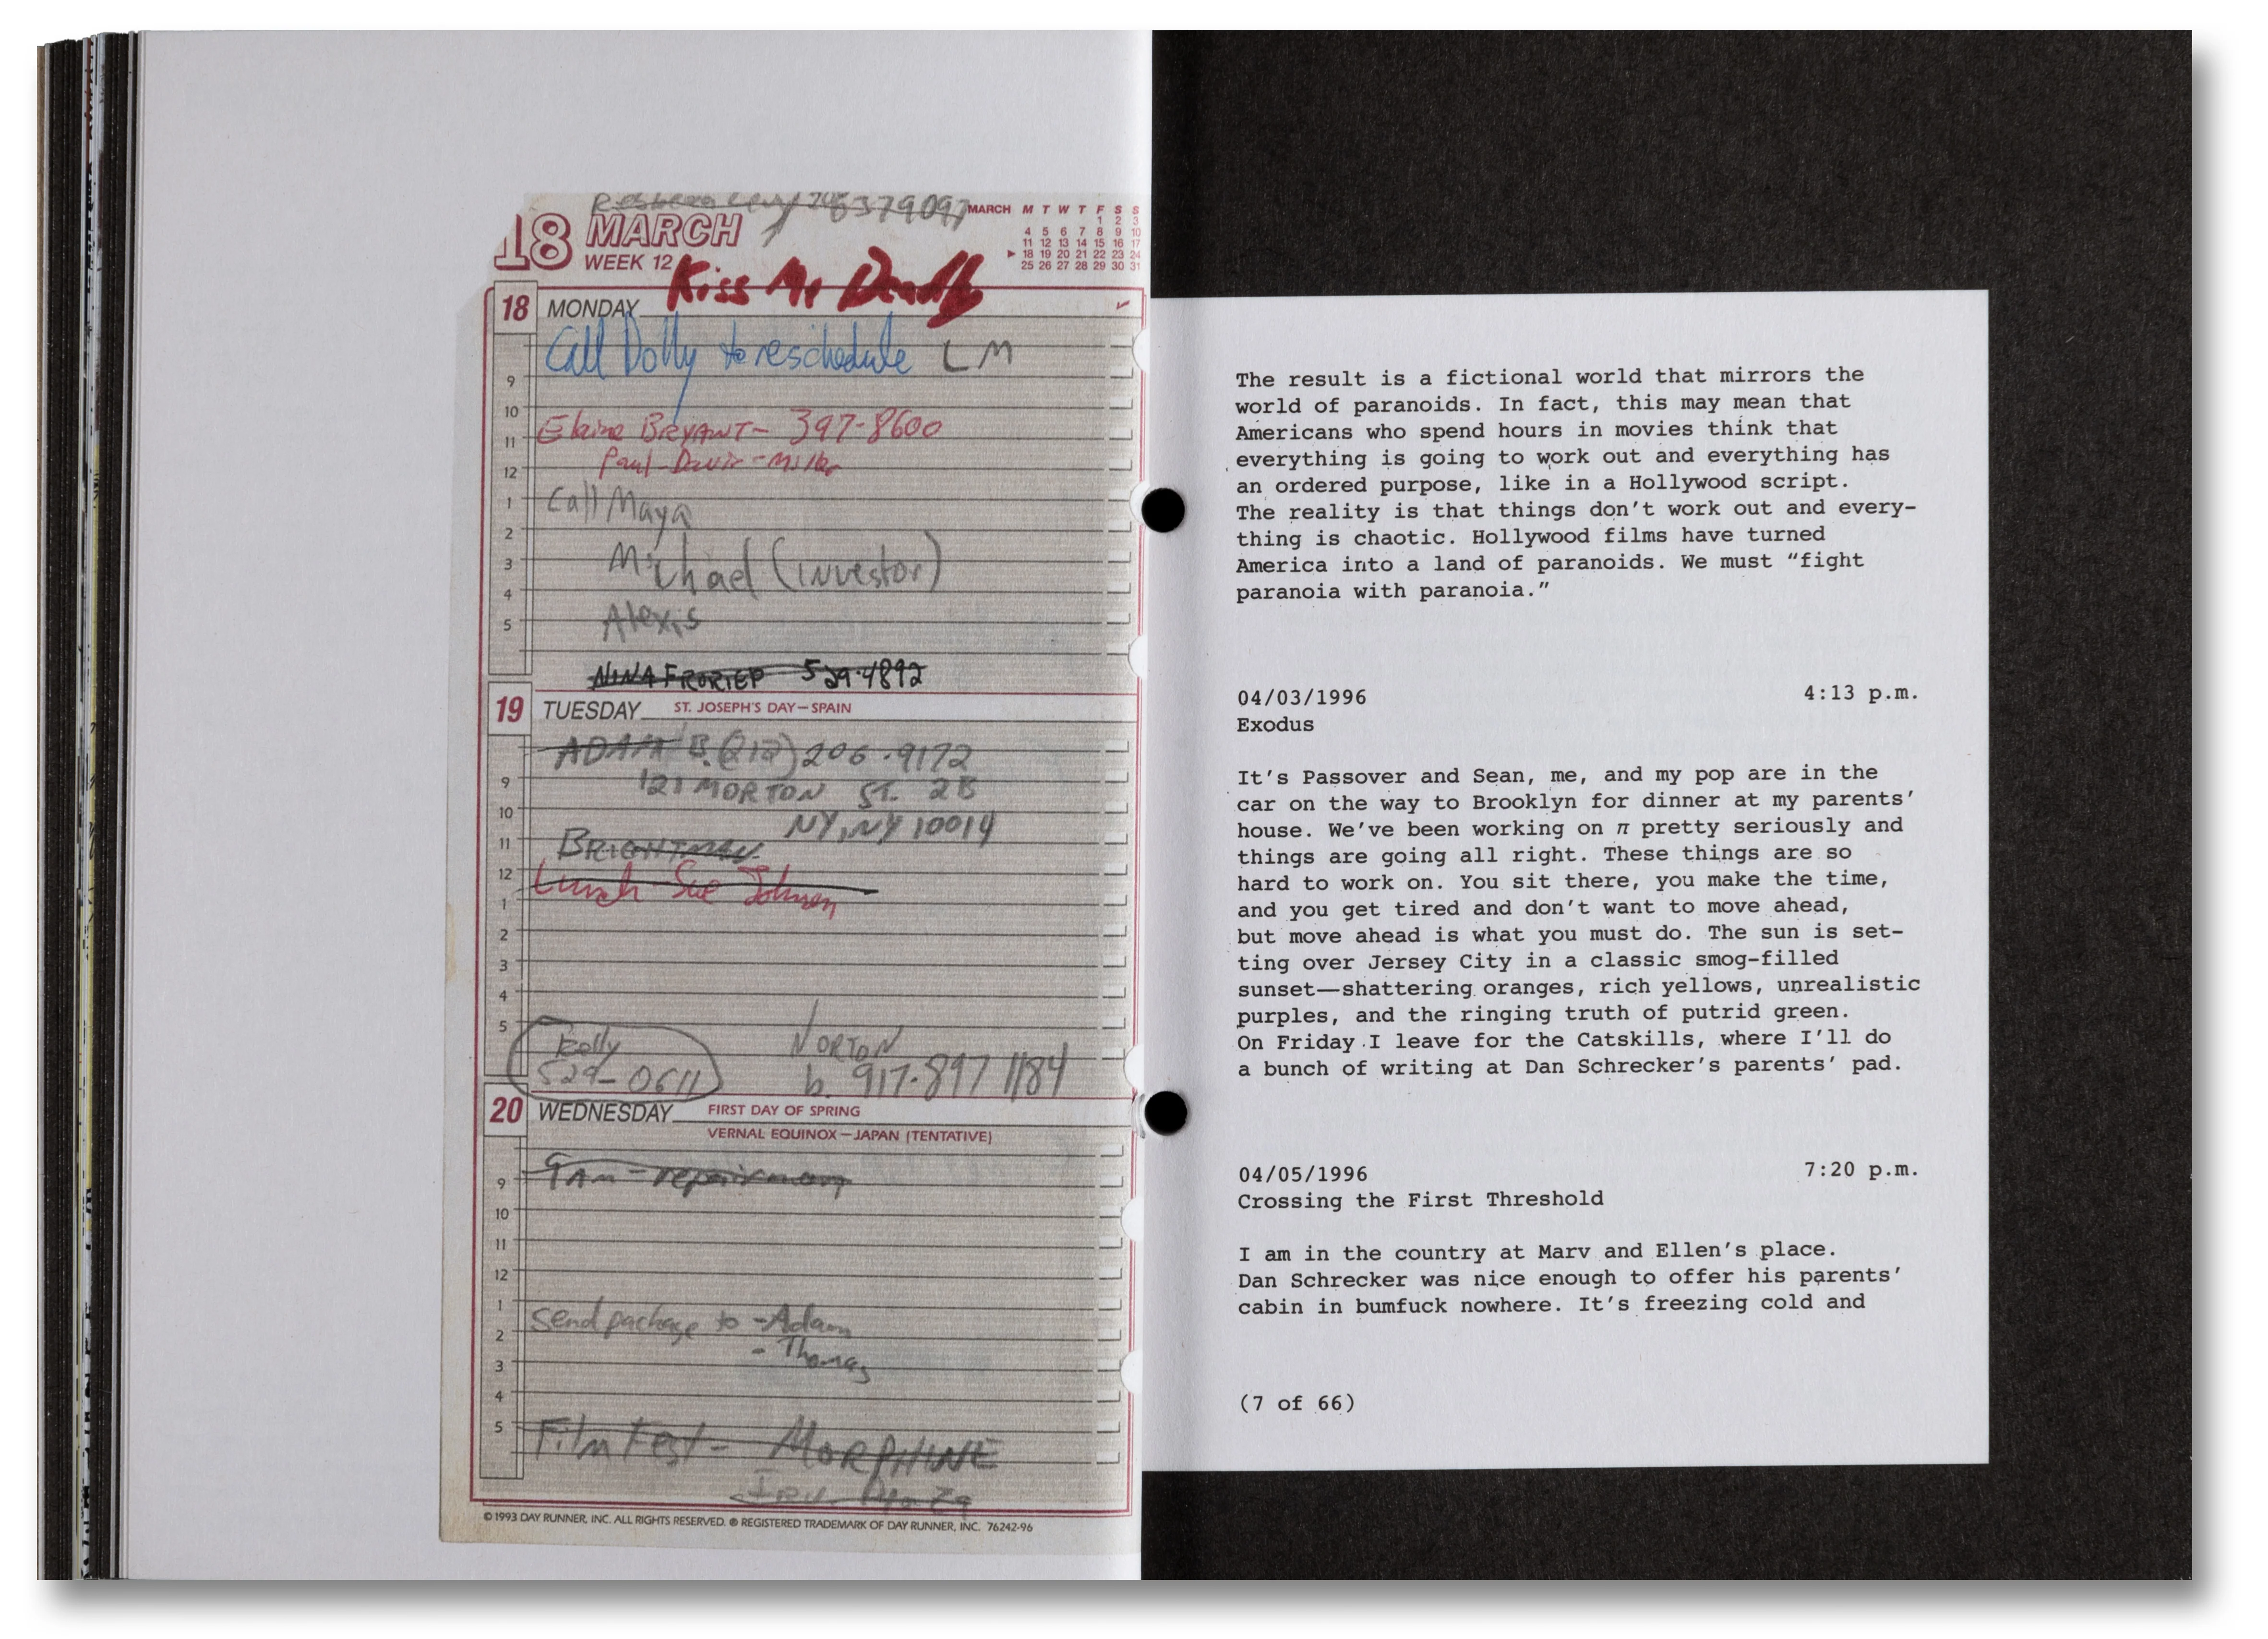 6379097
18 MARCH
WEEK 12
MARCH M T W T F S S
1 2 3
4 5 6 7 8 9 10
11 12 13 14 15 16 17
18 19 20 21 22 23 24
25 26 27 28 29 30 31
Kiss Me Deadly
18 MONDAY
Call Dolly to reschedule LM
9
10
Elaine BRYANT- 397-8600
11
Paul-Davis-Miller
12
1
Call Maya
2
Michael (investor)
3
4
Alexis
5
NINA FRORIEP 529-4892
19 TUESDAY ST. JOSEPH'S DAY—SPAIN
ADAM B. (212) 206-9172
9
121 MORTON ST. 2B
10
NY, NY 10014
11
BRIGHTMAN
12
Lunch-Sue Johnson
1
2
3
4
5
Kelly NORTON
529-0611 b. 917-897 1184
20 WEDNESDAY FIRST DAY OF SPRING
VERNAL EQUINOX—JAPAN (TENTATIVE)
9 AM - repairman
9
10
11
12
1
Send package to -Adam
2
- Thomas
3
4
5
Film Fest- MORPHINE
© 1993 DAY RUNNER, INC. ALL RIGHTS RESERVED. ® REGISTERED TRADEMARK OF DAY RUNNER, INC. 76242-96
The result is a fictional world that mirrors the
world of paranoids. In fact, this may mean that
Americans who spend hours in movies think that
everything is going to work out and everything has
an ordered purpose, like in a Hollywood script.
The reality is that things don't work out and every-
thing is chaotic. Hollywood films have turned
America into a land of paranoids. We must “fight
paranoia with paranoia.”
04/03/1996 4:13 p.m.
Exodus
It's Passover and Sean, me, and my pop are in the
car on the way to Brooklyn for dinner at my parents'
house. We've been working on π pretty seriously and
things are going all right. These things are so
hard to work on. You sit there, you make the time,
and you get tired and don't want to move ahead,
but move ahead is what you must do. The sun is set-
ting over Jersey City in a classic smog-filled
sunset—shattering oranges, rich yellows, unrealistic
purples, and the ringing truth of putrid green.
On Friday I leave for the Catskills, where I'll do
a bunch of writing at Dan Schrecker's parents' pad.
04/05/1996 7:20 p.m.
Crossing the First Threshold
I am in the country at Marv and Ellen's place.
Dan Schrecker was nice enough to offer his parents'
cabin in bumfuck nowhere. It's freezing cold and
(7 of 66)